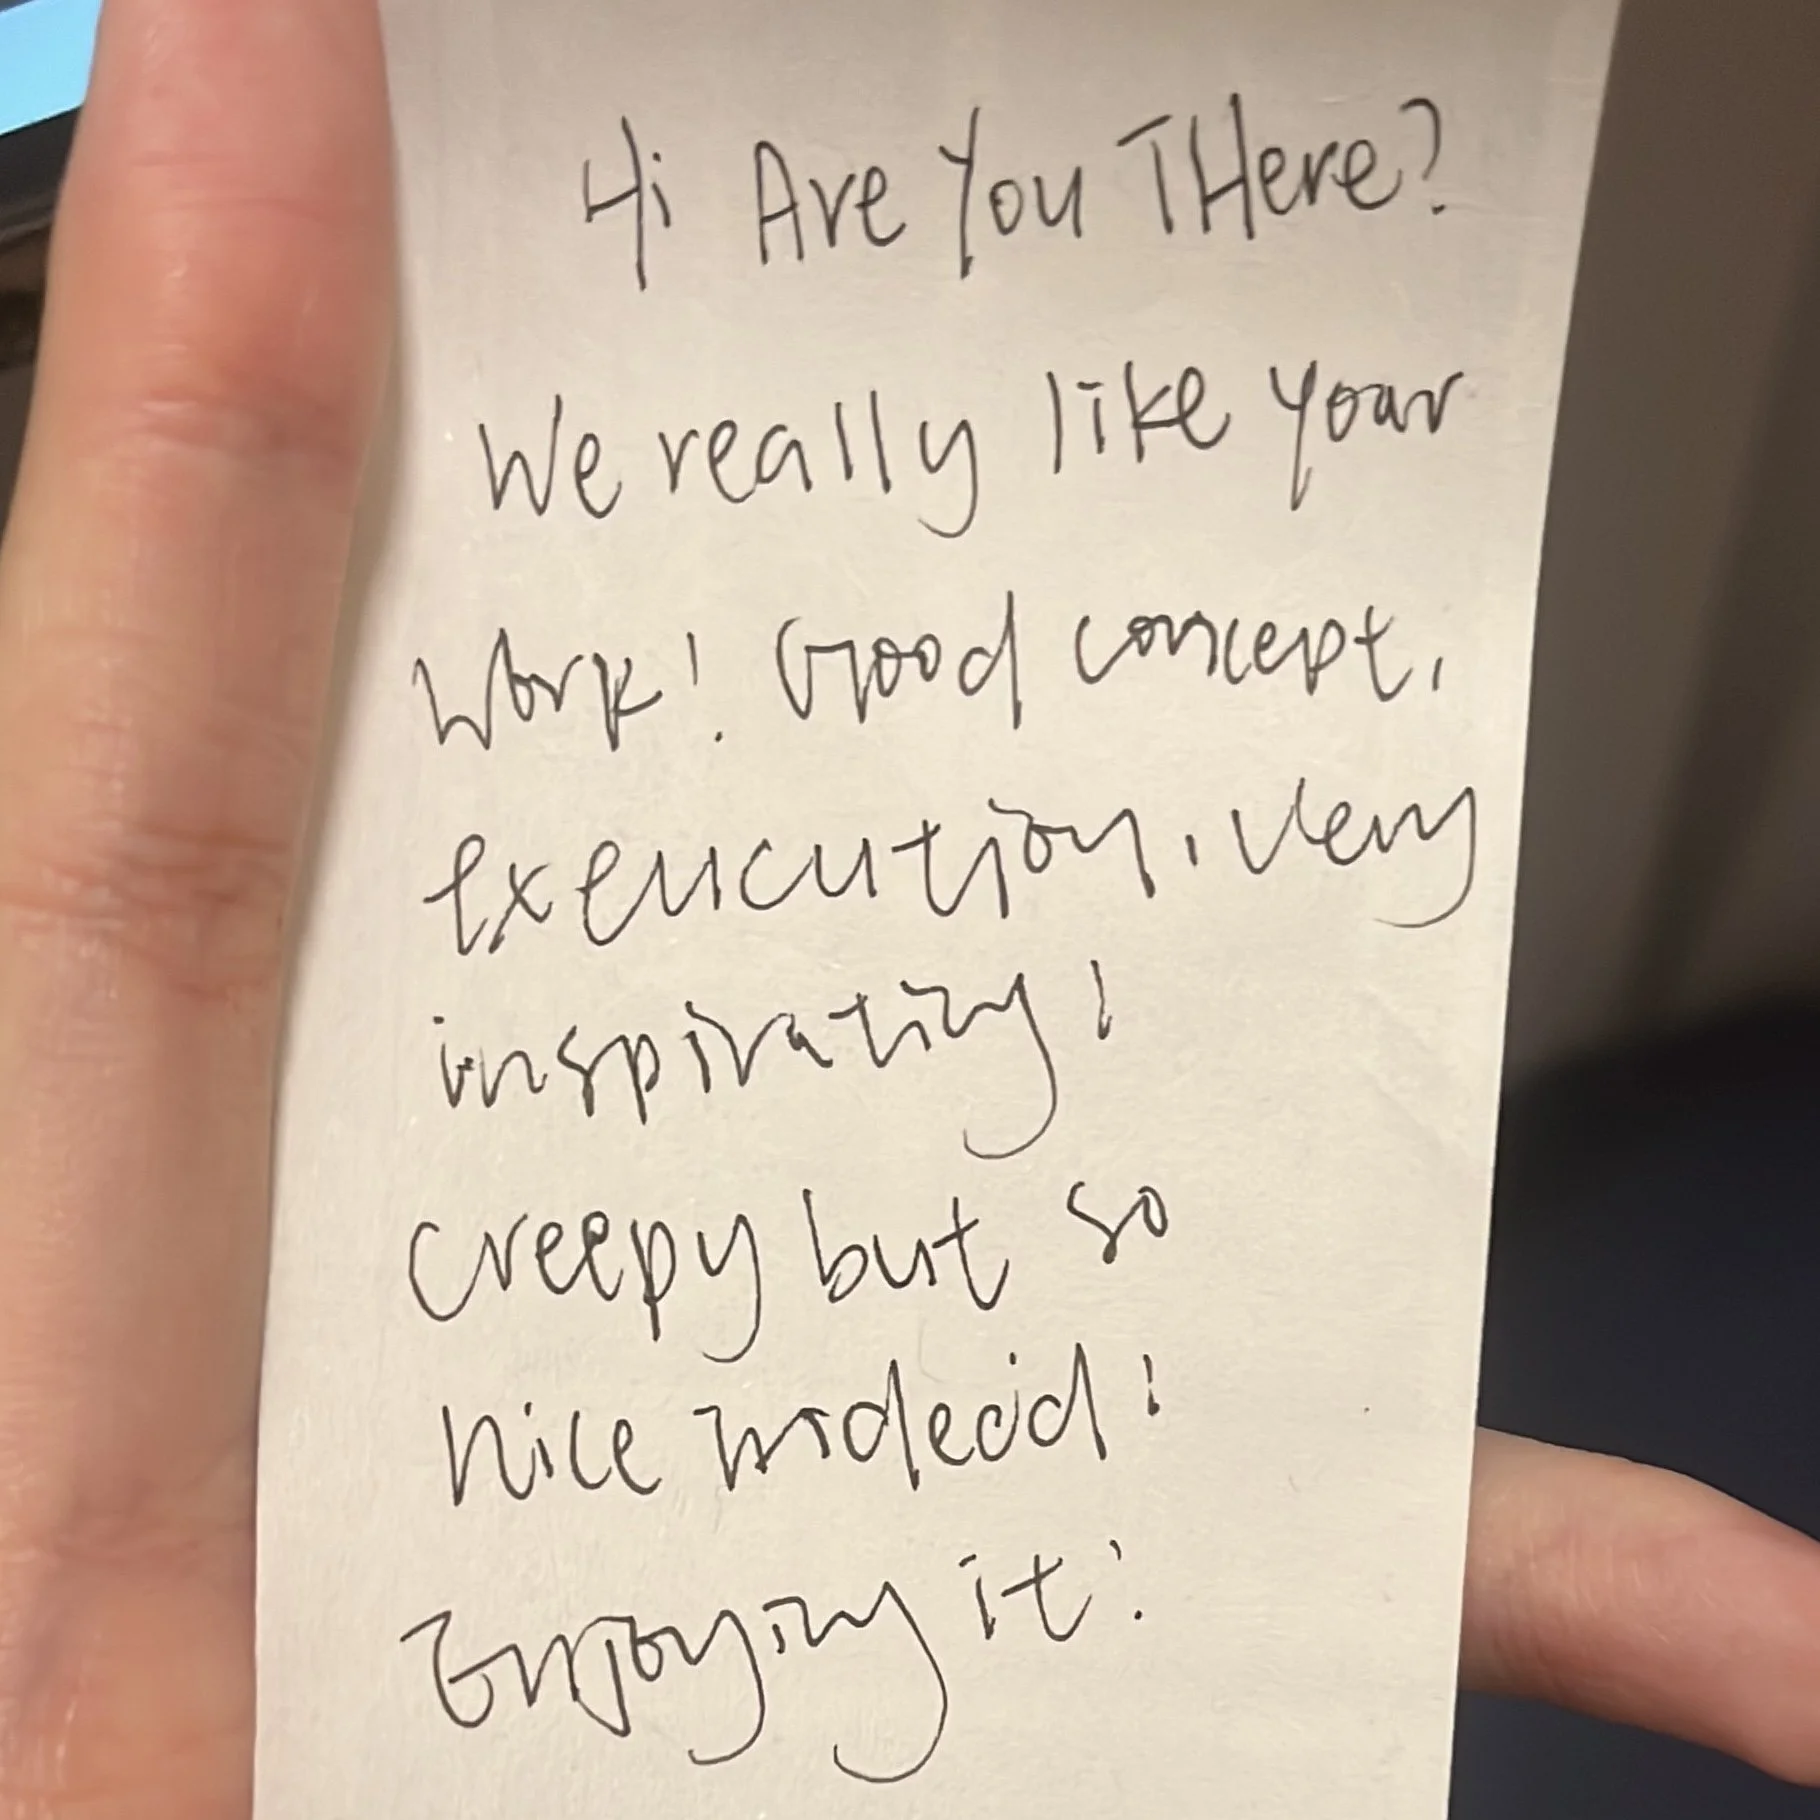 Hi Are You THere?
We really like your
work! Good concept,
exeucution, very
inspirating!
creepy but so
nice indeed!
Enjoying it!